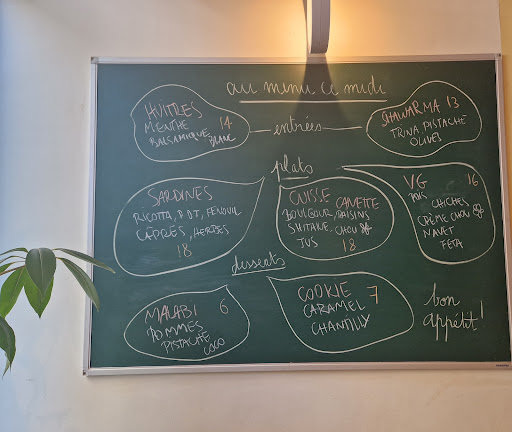 au menu ce midi
HUITRES 14
MENTHE
BALSAMIQUE BLANC
entrées
SHAWARMA 13
TRUITE PISTACHE
OLIVES
plats
SARDINES
RICOTTA, P D T, FENOUIL
CÂPRES, HERBES
18
CUISSE CANETTE
BOULGOUR RAISINS
SHITAKE, CHOU
JUS 18
VG 16
POIS CHICHES
CRÈME CHOU
NAVET
FETA
desserts
MALABI 6
POMMES
PISTACHE
COCO
COOKIE 7
CARAMEL
CHANTILLY
bon
appétit!